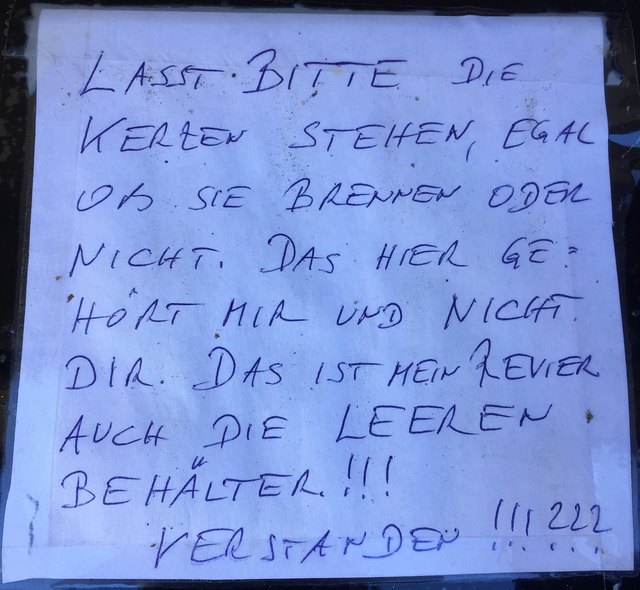 LASST BITTE DIE
KERZEN STEHEN, EGAL
OB SIE BRENNEN ODER
NICHT. DAS HIER GE=
HÖRT MIR UND NICHT
DIR. DAS IST MEIN REVIER
AUCH DIE LEEREN
BEHÄLTER.!!!
VERSTANDEN !!!???